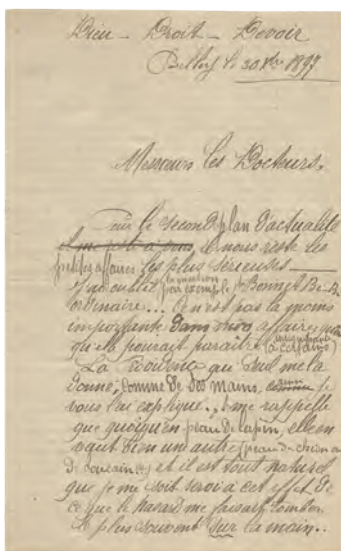 Dieu – Droit – Devoir
le 30 Xbre 1897
Messieurs les Docteurs,
Sur le second plan d'actualité
il nous reste les
petites affaires les plus sérieuses
la question
par exemple Bonnet
ordinaire... Ce n'est pas la moins
importante dans mon affaire
qu'elle pourait paraître (à certains)
La Providence qui seul me la
donne, comme de vos mains, je
vous l'ai expliqué... me rappelle
que quoiqu'en peau de lapin, elle en
vaut bien un autre (peau de chien ou
et il est tout naturel
que je me soit servi à cet effet de
ce que le hasard me faisait tomber
le plus souvent sur la main..